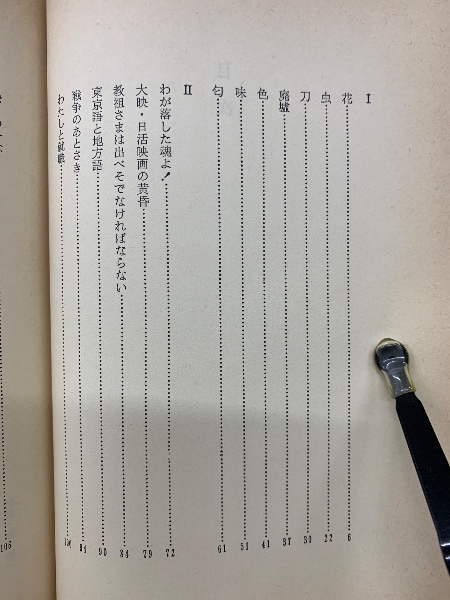 I
花 6
虫 22
刀 30
廃墟 37
色 41
味 51
匂 61
II
わが落した魂よ！ 72
大映・日活映画の黄昏 79
教祖さまは出べそでなければならない 84
東京語と地方語 90
戦争のあとさき 94
わたしと就職
106